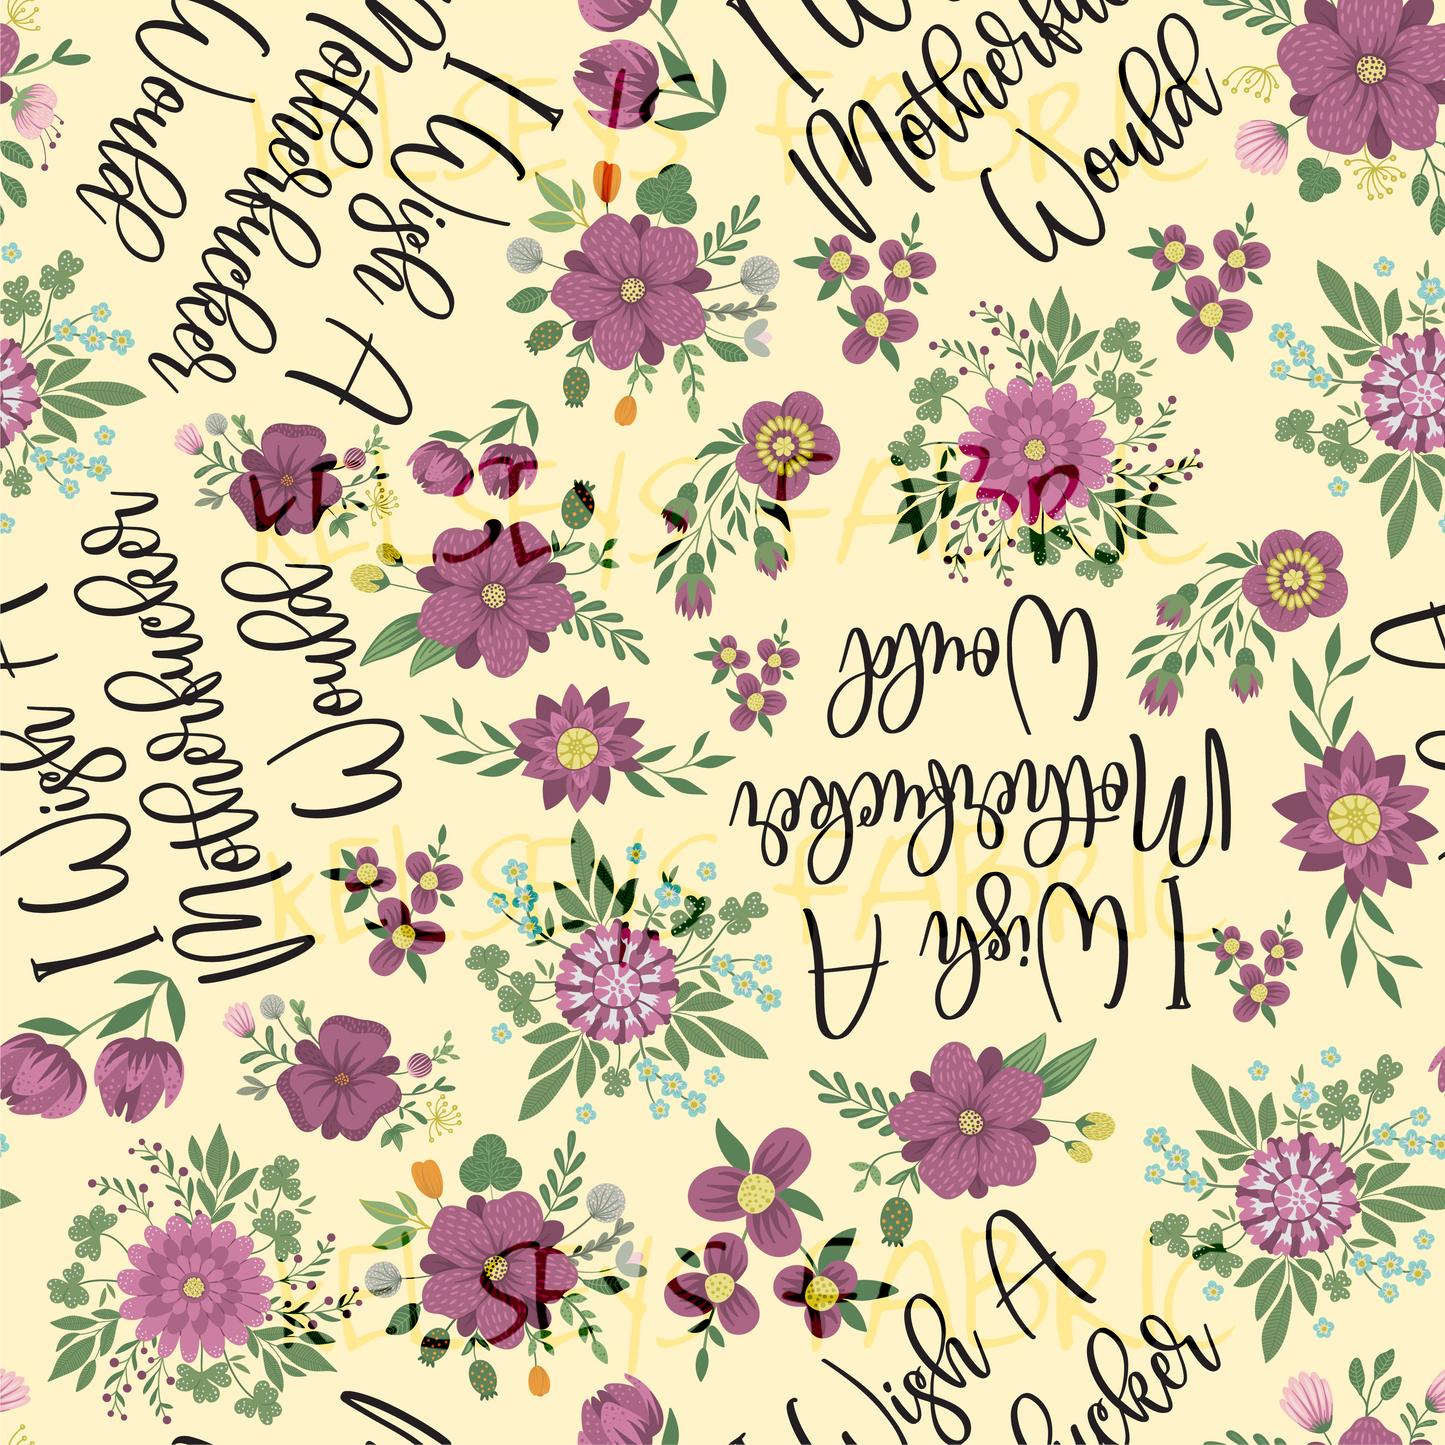 I Wish A
Motherfucker
Would
I W
Motherfu
Would
KELSEYS FABRIC
KELSEYS FABRIC
I Wish A
Motherfucker
Would
I Wish A
Motherfucker
Would
KELSEYS FABRIC
KELSEYS FABRIC
Wish A
ucker